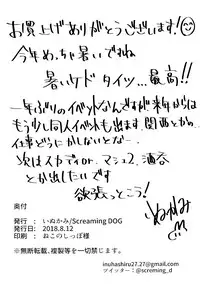 お買上げありがとうございます!
今年めっちゃ暑いですね
暑いケドタイツ…最高!!
一年ぶりのイベントなんですが来年からは
もう少し同人イベントも出ます。関西とか…
仕事どうにかしないとな…
次はスカディor、マシュ2、酒呑
とか出したいです
欲張っとこう!
ぬかみ
奥付
発行 : いぬかみ/Screaming DOG
発行日 : 2018.8.12
印刷 : おこのしっぽ様
※無断転載,複製等を一切禁じます。
inuhashiru27.27@gmail.com
ツイッター : @screming_d